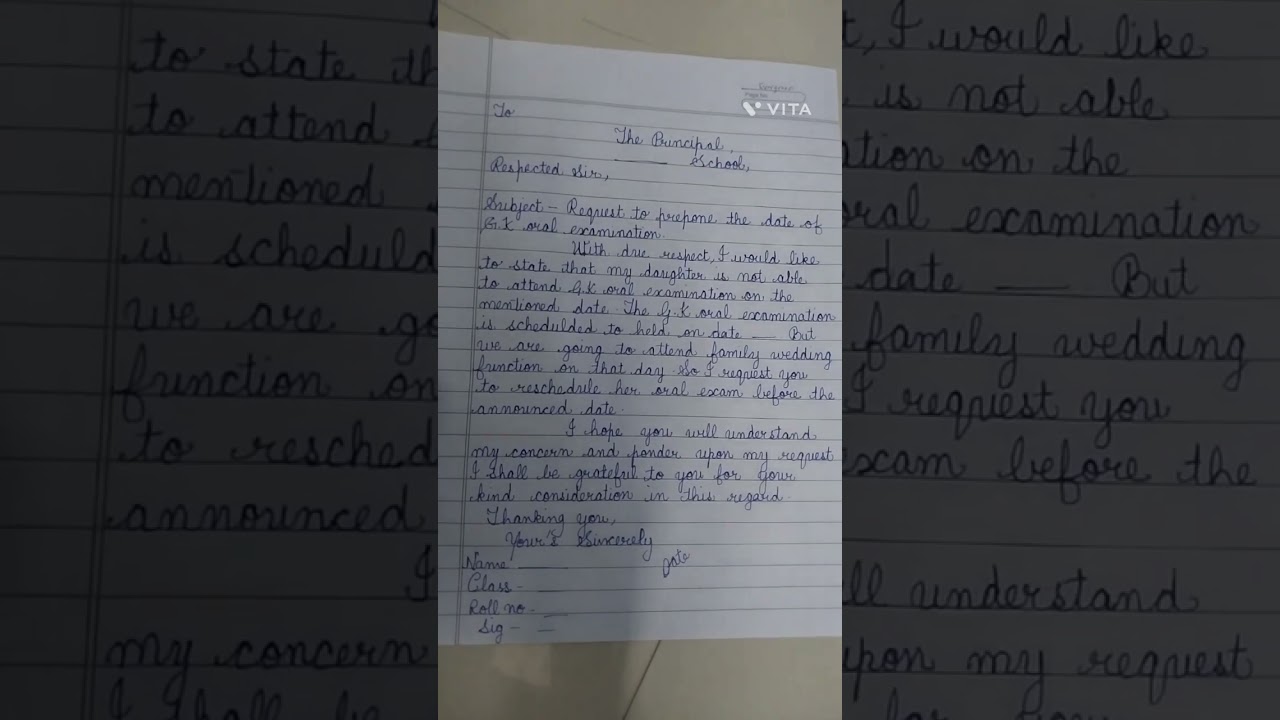 Evergreen
Page No.
VITA
To
The Principal,
____ School,
Respected Sir,
Subject - Request to prepone the date of
G.K oral examination.
With due respect, I would like
to state that my daughter is not able
to attend G.K oral examination on the
mentioned date. The G.K oral examination
is schedulded to held on date __ But
we are going to attend family wedding
function on that day. So I request you
to reschedule her oral exam before the
announced date.
I hope you will understand
my concern and ponder upon my request
I shall be grateful to you for your
kind consideration in this regard.
Thanking you,
Your's Sincerely
Name ____ Date
Class - ____
Roll no - __
Sig - __